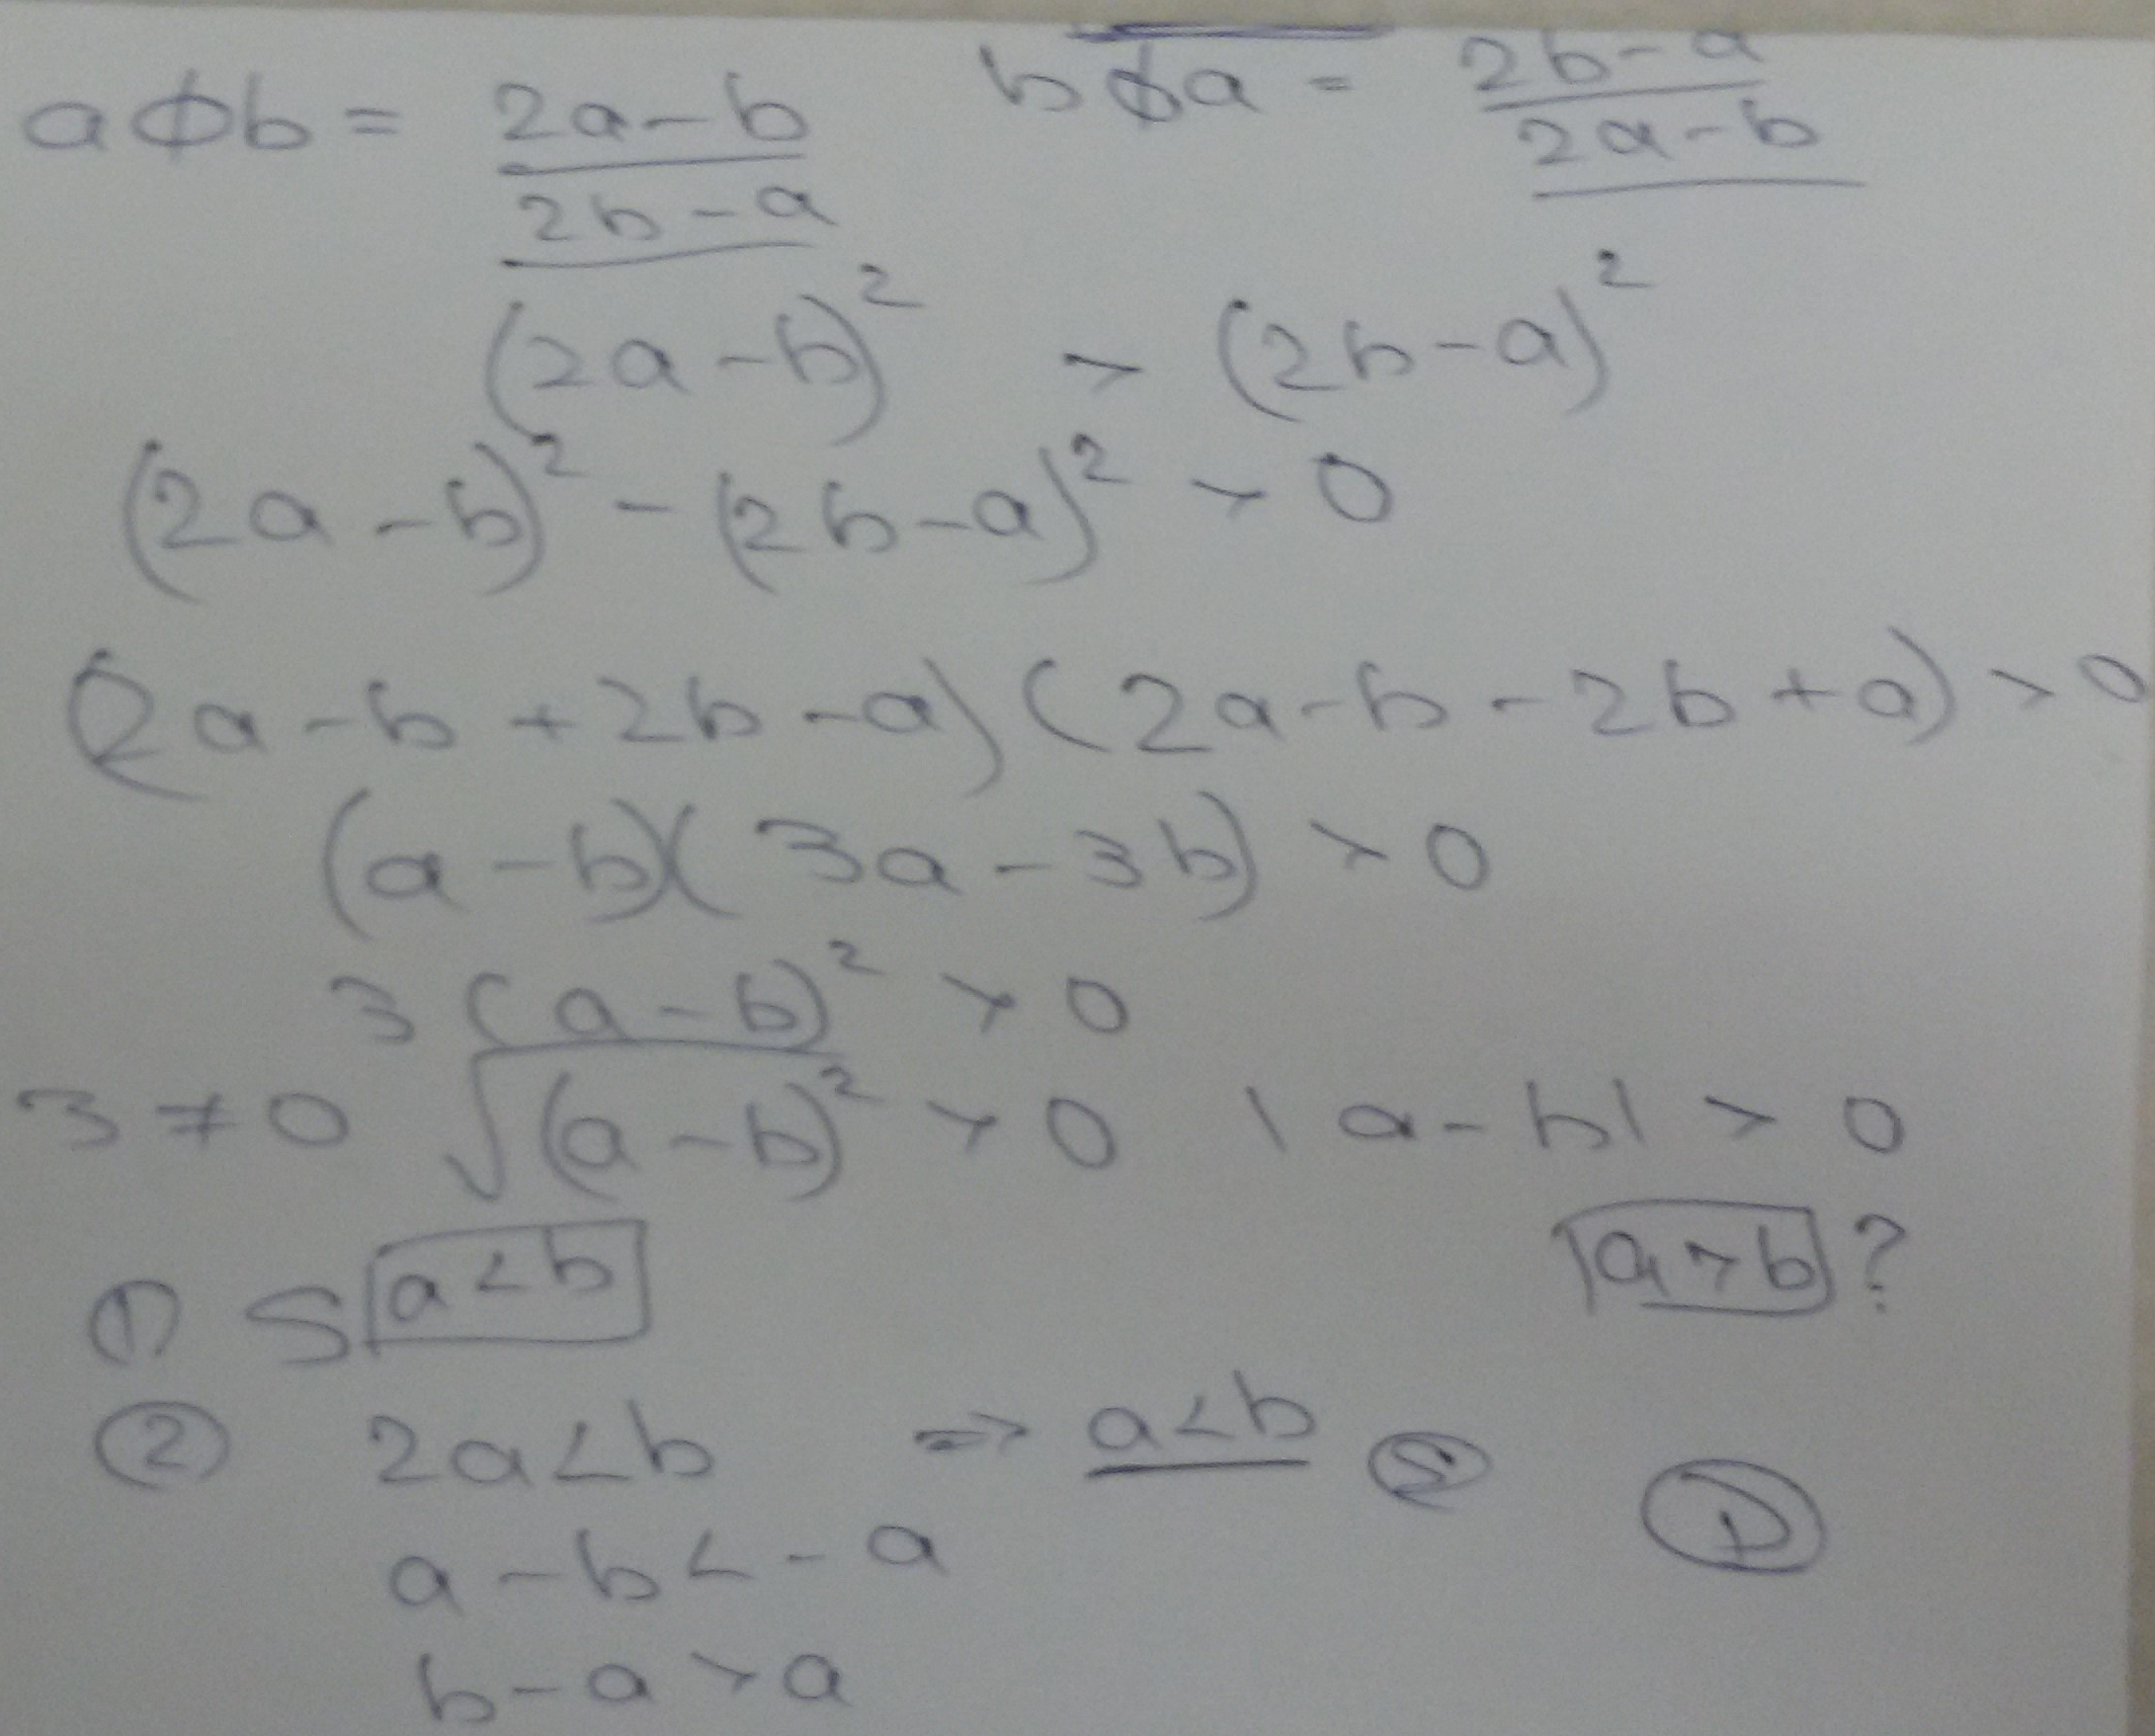 aϕb = (2a-b)/(2b-a)   bϕa = (2b-a)/(2a-b)
(2a-b)² > (2b-a)²
(2a-b)² - (2b-a)² > 0
(2a-b+2b-a)(2a-b-2b+a) > 0
(a-b)(3a-3b) > 0
3(a-b)² > 0
3≠0 √(a-b)² > 0 |a-b| > 0
a>b ?
① S a<b
② 2a<b => a<b Ⓢ Ⓓ
a-b<-a
b-a>a